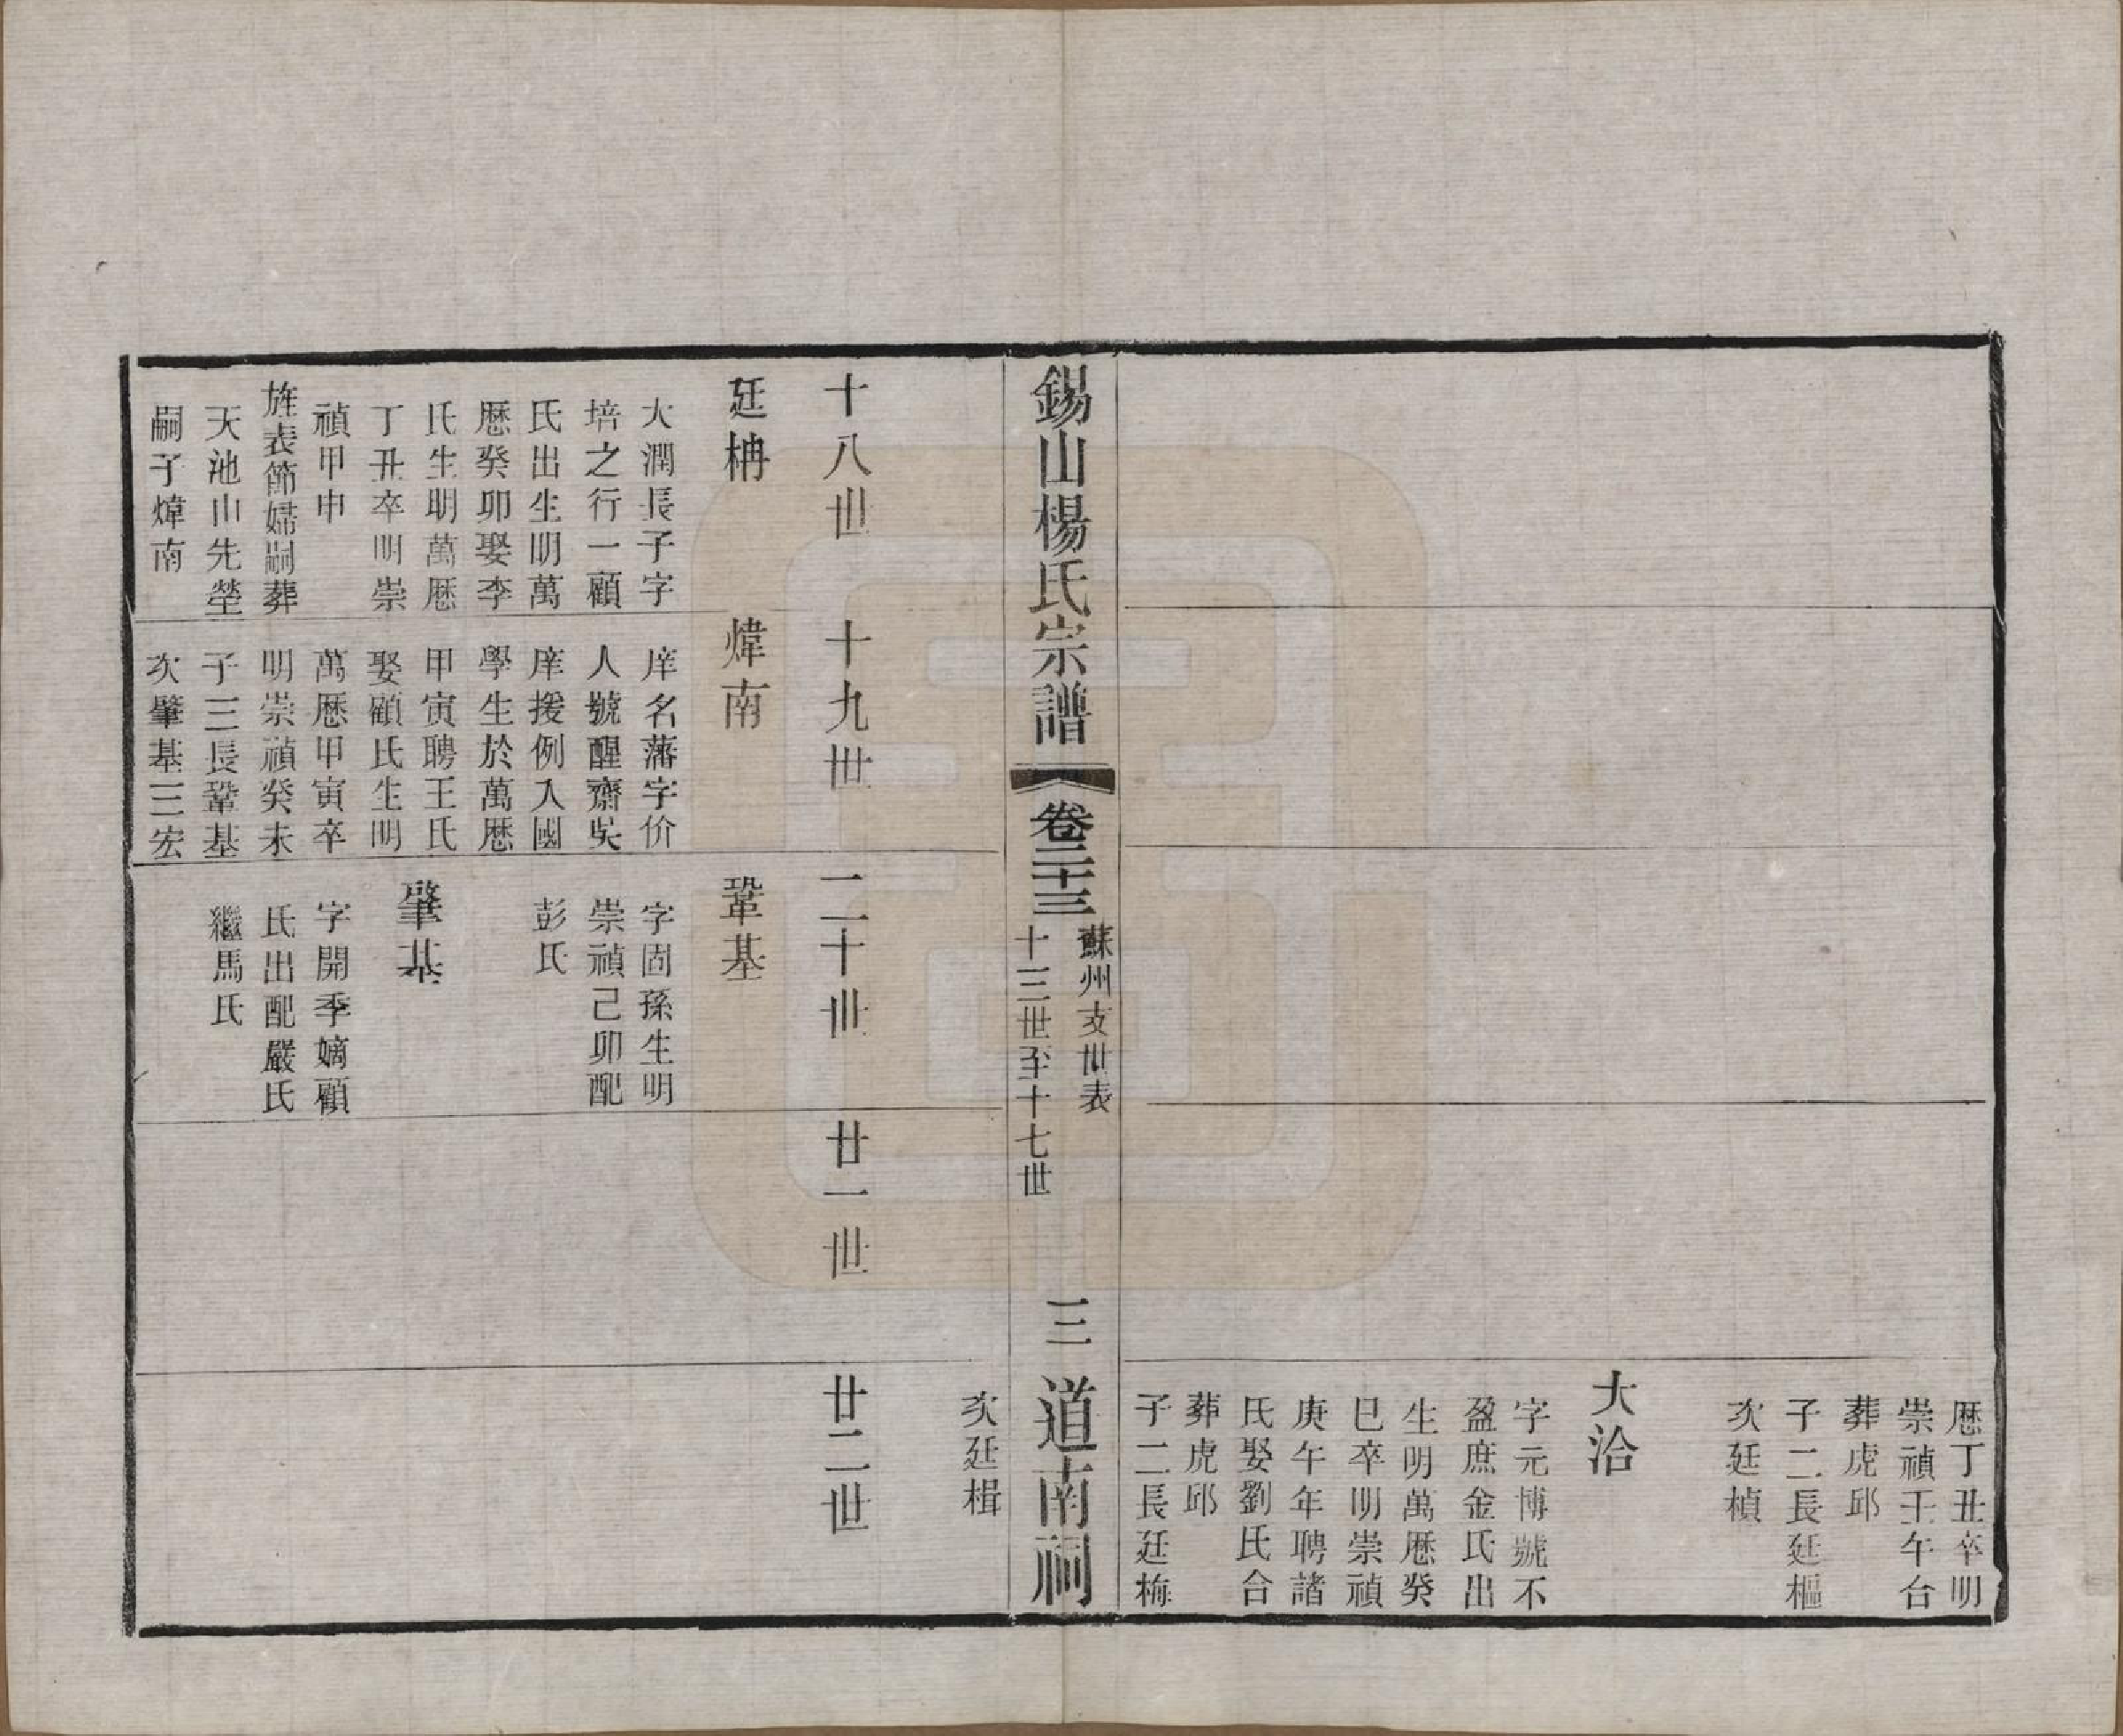 厯丁丑卒明
崇禎壬午合
葬虎邱
子二長廷樞
次廷楨
大洽
字元博號不
盈庶金氏出
生明萬厯癸
巳卒明崇禎
庚午年聘諸
氏娶劉氏合
葬虎邱
子二長廷梅
錫山楊氏宗譜
卷二十三
蘇州支世表
十三世至十七世
三
道南祠
次廷楫
十八世
十九世
二十世
廿一世
廿二世
廷柟
大潤長子字
培之行一顧
氏出生明萬
厯癸卯娶李
氏生明萬厯
丁丑卒明崇
禎甲申
旌表節婦嗣葬
天池山先塋
嗣子煒南
煒南
庠名藩字价
人號醒齋吳
庠援例入國
學生於萬厯
甲寅聘王氏
娶顧氏生明
萬厯甲寅卒
明崇禎癸未
子三長鞏基
次肇基三宏
鞏基
字固孫生明
崇禎己卯配
彭氏
肇基
字開季嫡顧
氏出配嚴氏
繼馬氏